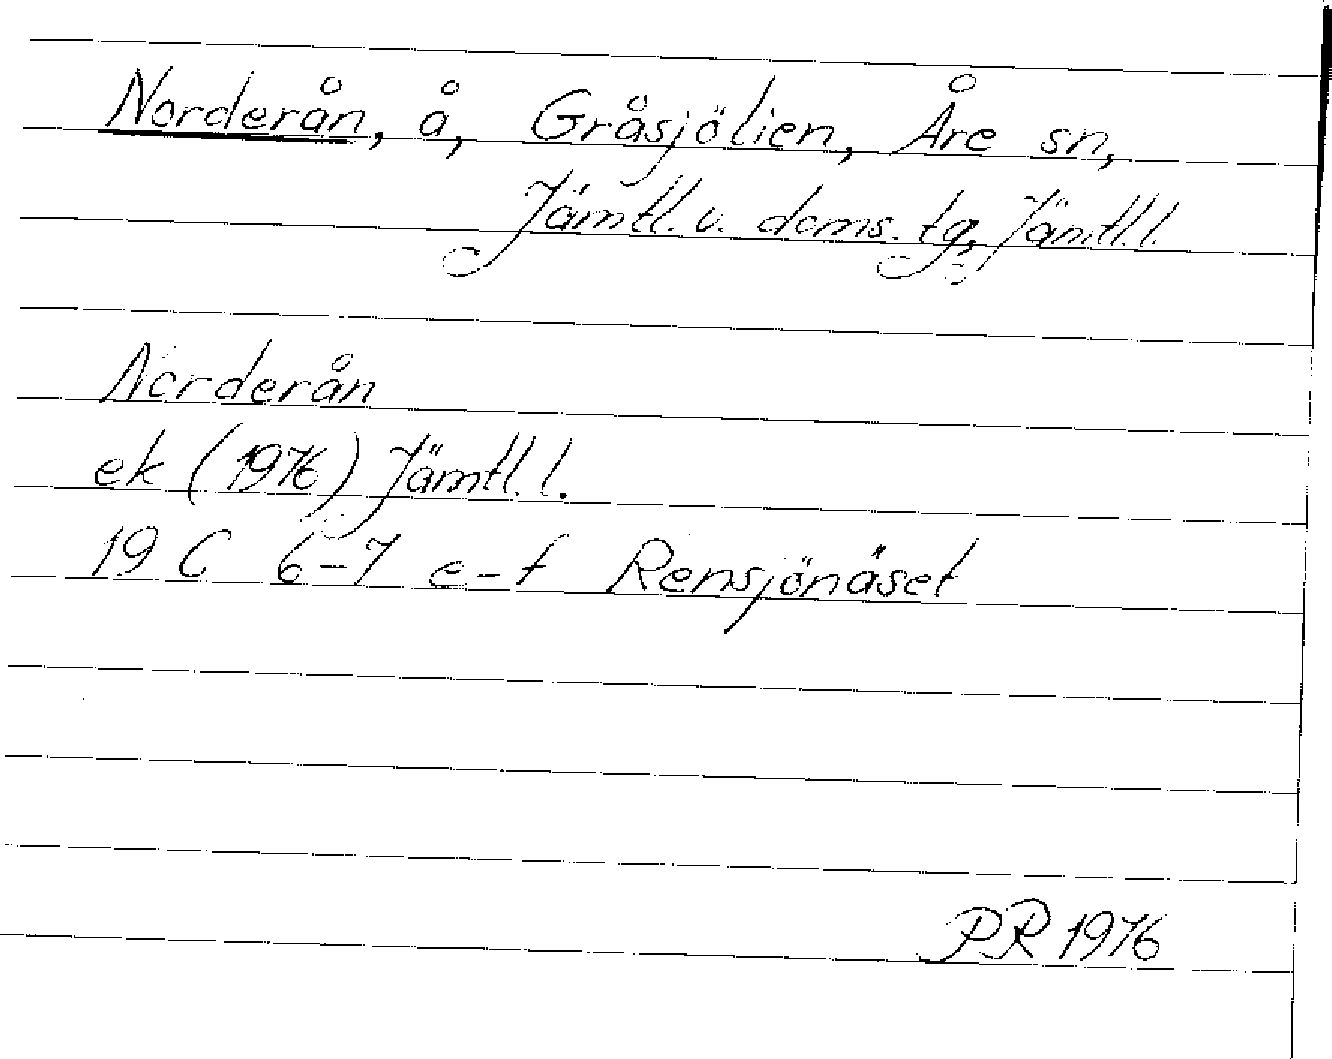 Norderån, å, Gråsjölien, Åre sn,
Jämtl. v. doms. tg, Jämtl. l.
Norderån
ek (1976) Jämtl. l.
19 C 6-7 e-f Rensjönäset
PR 1976